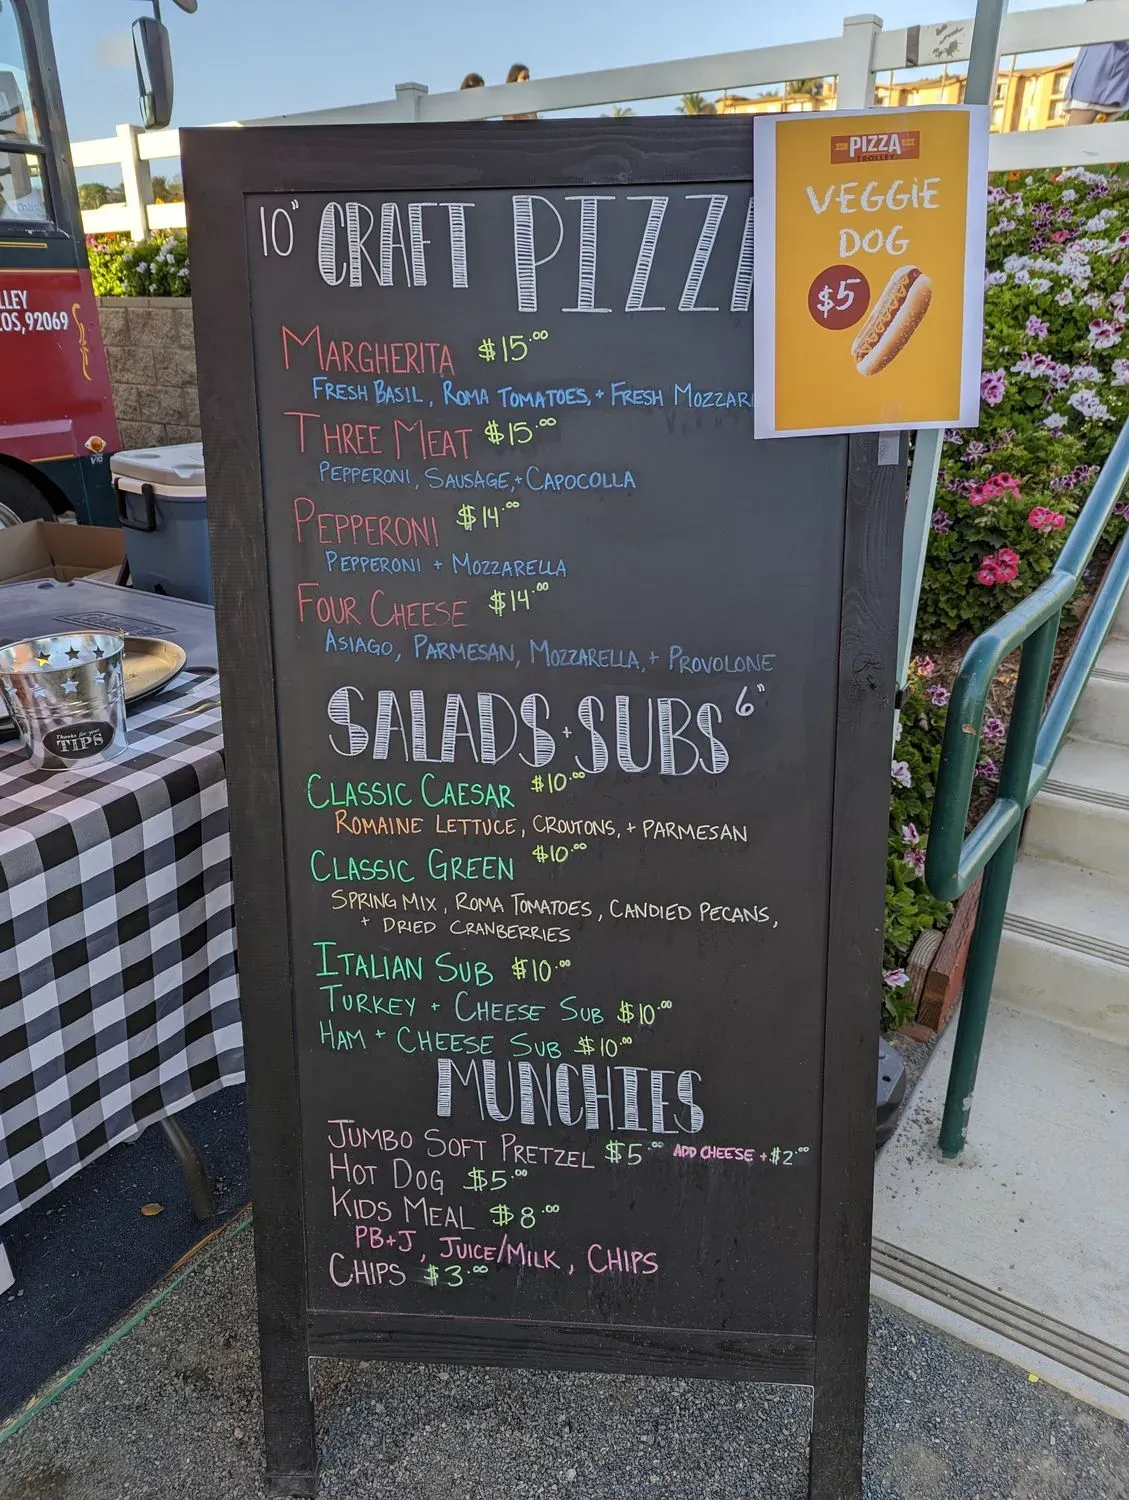 10" CRAFT PIZZ
MARGHERITA $15.00
FRESH BASIL, ROMA TOMATOES, + FRESH MOZZAR
THREE MEAT $15.00
PEPPERONI, SAUSAGE, + CAPOCOLLA
PEPPERONI $14.00
PEPPERONI + MOZZARELLA
FOUR CHEESE $14.00
ASIAGO, PARMESAN, MOZZARELLA, + PROVOLONE
SALADS + SUBS 6"
CLASSIC CAESAR $10.00
ROMAINE LETTUCE, CROUTONS, + PARMESAN
CLASSIC GREEN $10.00
SPRING MIX, ROMA TOMATOES, CANDIED PECANS,
+ DRIED CRANBERRIES
ITALIAN SUB $10.00
TURKEY + CHEESE SUB $10.00
HAM + CHEESE SUB $10.00
MUNCHIES
JUMBO SOFT PRETZEL $5.00 ADD CHEESE +$2.00
HOT DOG $5.00
KIDS MEAL $8.00
PB+J, JUICE/MILK, CHIPS
CHIPS $3.00
PIZZA
TROLLEY
VEGGIE
DOG
$5
LLEY
COS, 92069
Thanks for your
TIPS